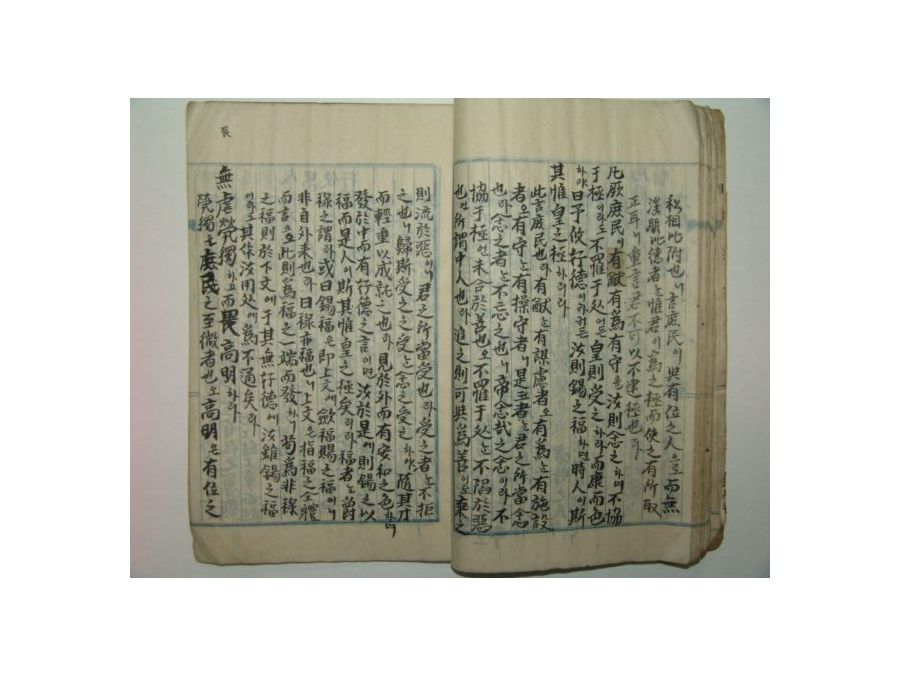 私相比附也ㅣ니 言庶民이 與有位之人으로 而無
淫朋比德者는 惟君이 爲之極而使之有所取
正耳니 重言君不可以不建極也라
凡厥庶民이 有猷有爲有守를 汝則念之하며 不協
于極이라도 不罹于咎어든 皇則受之하라 而康而色
하야 曰予攸好德이라커든 汝則錫之福하면 時人이 斯
其惟皇之極하리라
此言庶民也라 有猷는 有謀慮者오 有爲는 有施設
者오 有守는 有操守者니 是三者는 君之所當念
也라 念之者는 不忘之也니 帝念哉之念이라 不
協于極은 未合於善也오 不罹于咎는 不陷於惡
也니 所謂中人也라 進之則可與爲善이오 棄之
則流於惡이니 君之所當受也라 受之者는 不拒
之也니 歸斯受之之受는 念之受之하야 隨其才
而輕重以成就之也라 見於外而有安和之色하며
發於中而有好德之言이면 汝於是에 則錫之以
福而是人이 斯其惟皇之極矣리라 福者는 爵
祿之謂라 或曰錫福은 即上文에 斂福賜之福이니
非自外來也라 曰祿亦福也니 上文은 指福之全體
而言으로 此則爲福之一端而發하니 苟爲非祿
之福則於下文에 于其無好德에 汝雖錫之福
이라도 其作汝用咎에 爲不通矣라
無虐煢獨하고 而畏高明하라
煢獨은 庶民之至微者也오 高明은 有位之